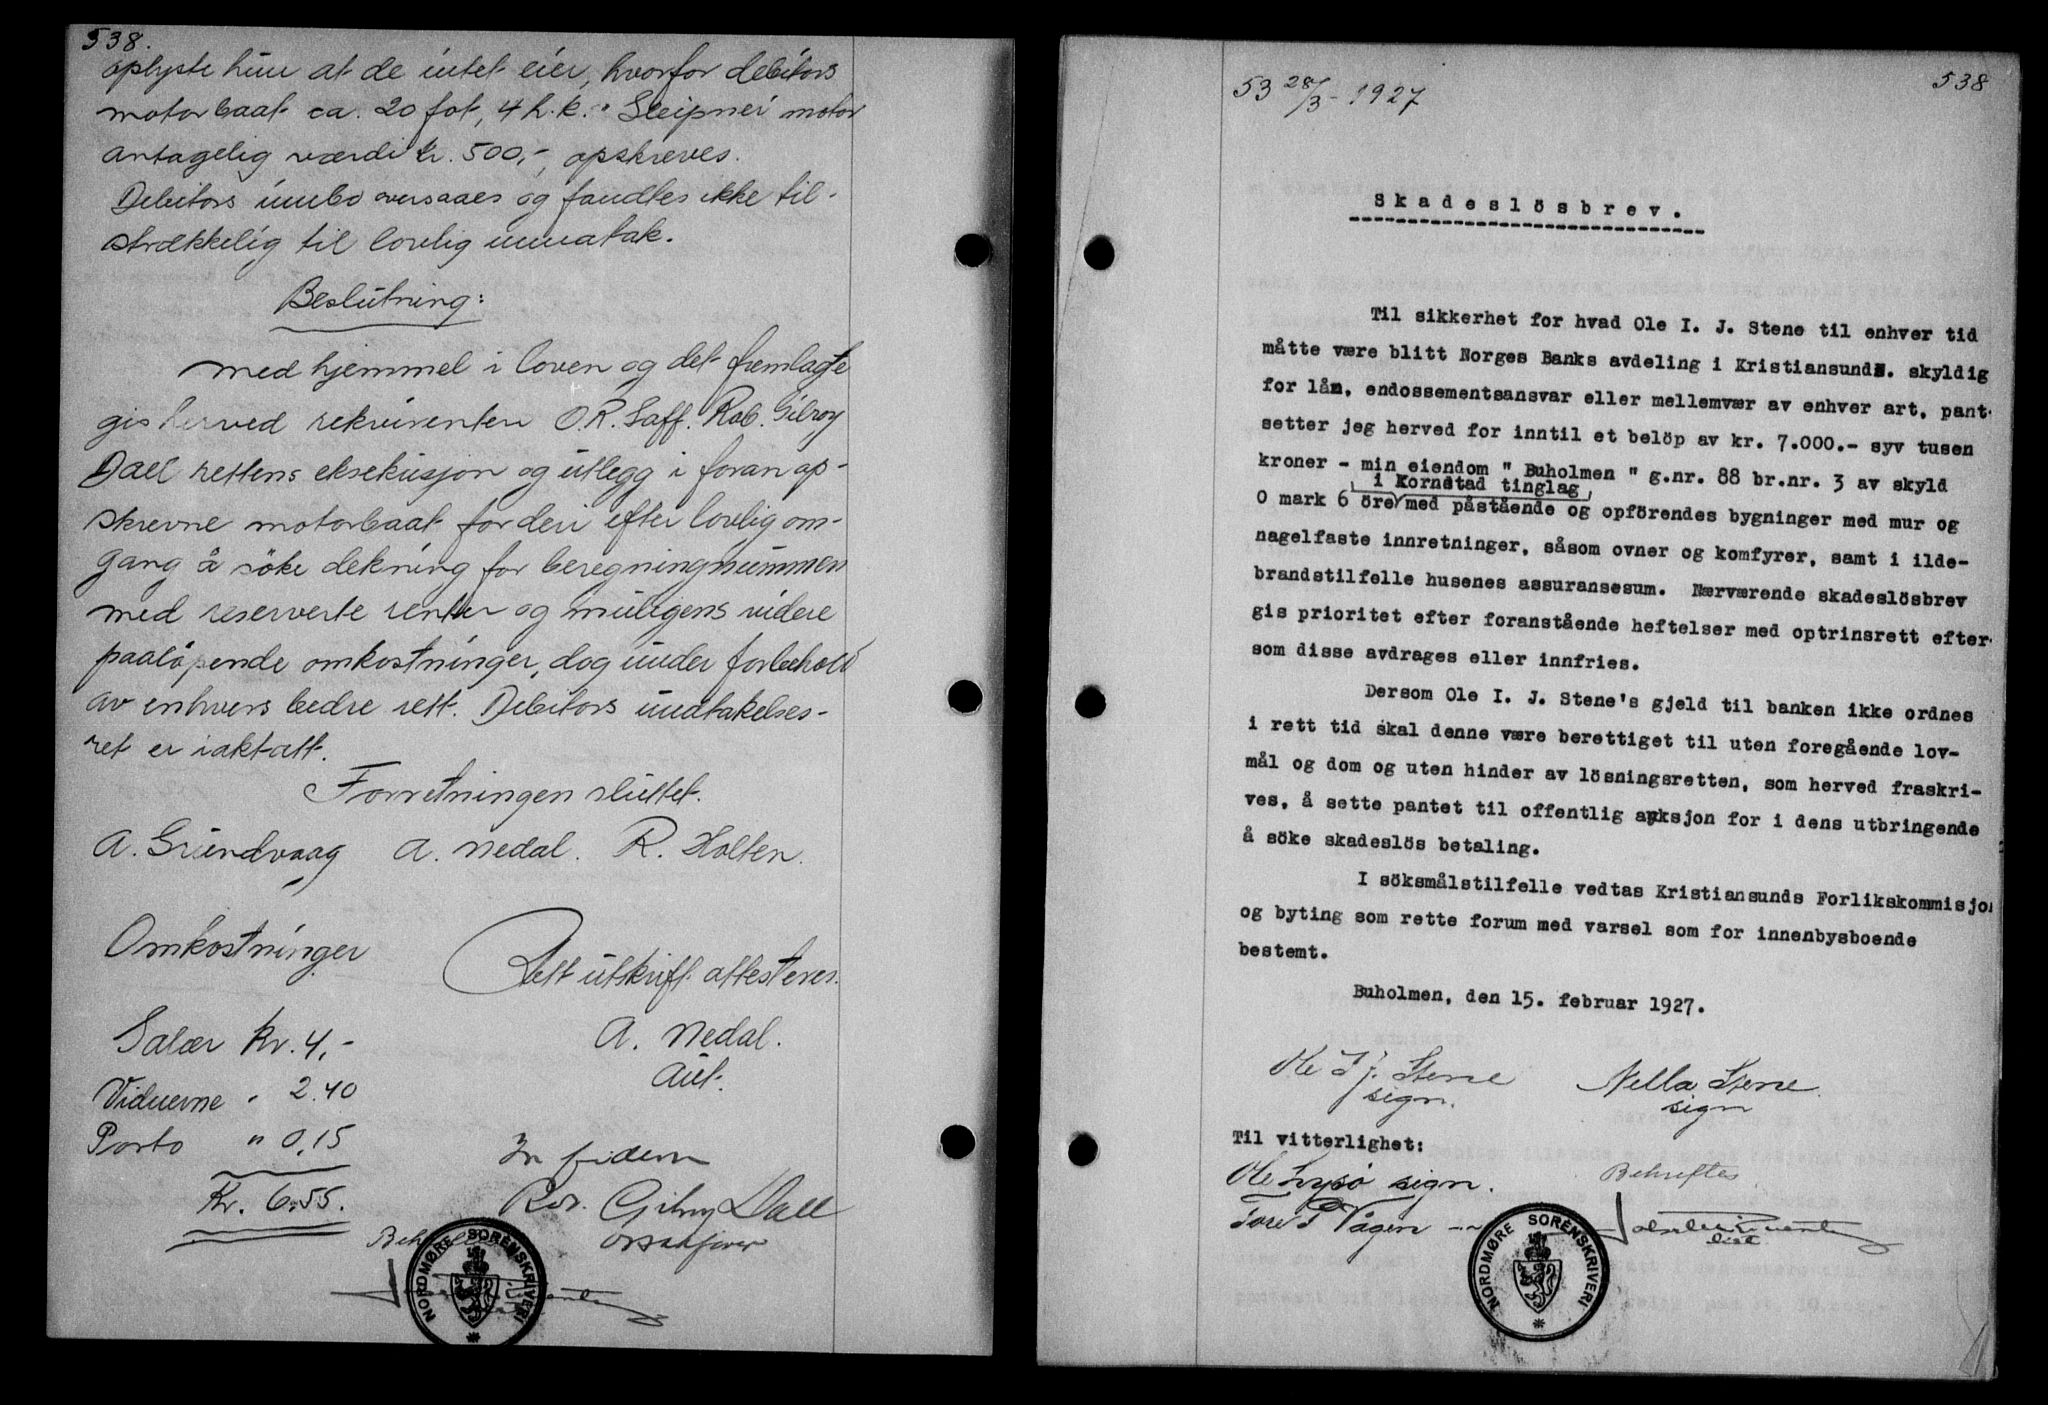 538.
oplyste hun at de intet eier, hvorfor debitors
motorbaat ca. 20 fot, 4 h.k. "Sleipner motor
antagelig værdi kr. 500,-, opskreves.
Debitors innbo oversaaes og fandtes ikke til-
strækkelig til lovlig unnatak.
Beslutning:
Med hjemmel i loven og det fremlagte
gis herved rekvirenten O.R. Saff. Rob. Gilroy
Dall rettens eksekusjon og utlegg i foran op-
skrevne motorbaat for deri efter lovlig om-
gang å söke dekning for beregningsummen
med reserverte renter og muligens videre
paalöpende omkostninger, dog under forbehold
av enhvers bedre rett. Debitors undtakelses-
ret er iakttatt.
Forretningen sluttet.
A. Grundvaag A. Nedal. R. Holten.
Omkostninger
Rett utskrift attesteres.
Salær kr. 4,-
A. Nedal.
Aut.
Vidnerne " 2.40
Porto " 0,15
Kr. 6.55.
In fidem
Rob. Gilroy Dall
o.r.sakfører
NORDMØRE SORENSKRIVERI
53 28/3-1927
538
Skadeslösbrev.
Til sikkerhet for hvad Ole I. J. Stene til enhver tid
måtte være blitt Norges Banks avdeling i Kristiansund N. skyldig
for lån, endossementsansvar eller mellemvær av enhver art, pant-
setter jeg herved for inntil et belöp av kr. 7.000.- syv tusen
kroner - min eiendom " Buholmen " g.nr. 88 br.nr. 3 av skyld
i Kornstad tinglag
0 mark 6 öre med påstående og opförendes bygninger med mur og
nagelfaste innretninger, såsom ovner og komfyrer, samt i ilde-
brandstilfelle husenes assuransesum. Nærværende skadeslösbrev
gis prioritet efter foranstående heftelser med optrinsrett efter-
som disse avdrages eller innfries.
Dersom Ole I. J. Stene's gjeld til banken ikke ordnes
i rett tid skal denne være berettiget til uten foregående lov-
mål og dom og uten hinder av lösningsretten, som herved fraskri-
ves, å sette pantet til offentlig auksjon for i dens utbringende
å söke skadeslös betaling.
I söksmålstilfelle vedtas Kristiansunds Forlikskommisjon
og byting som rette forum med varsel som for innenbysboende
bestemt.
Buholmen, den 15. februar 1927.
Ole I. J. Stene Nella Stene
sign. sign
Til vitterlighet:
Ole Lysö sign.
Bekreftes
Tore P Vågen - "
NORDMØRE SORENSKRIVERI